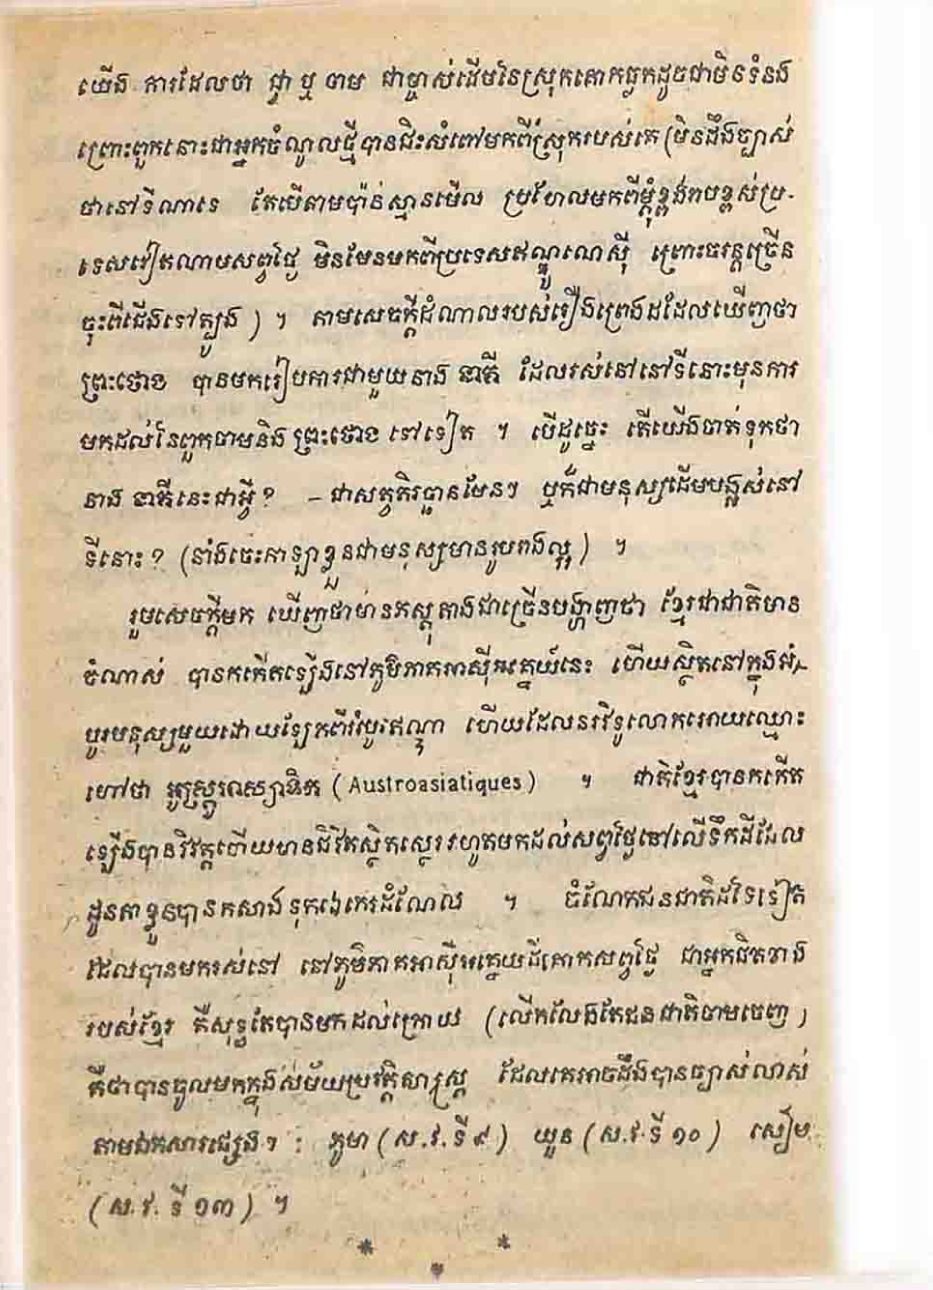 យើង ការដែលថា ជ្វា ឬ ចាម ជាម្ចាស់ដើមនៃស្រុកគោកធ្លកដូចជាមិនទំនង
ព្រោះពួកនោះជាអ្នកចំណូលថ្មីបានជិះសំពៅមកពីស្រុករបស់គេ (មិនដឹងច្បាស់
ថានៅទីណាទេ តែបើតាមប៉ាន់ស្មានមើល ប្រហែលមកពីម្ដុំខ្ពង់រាបខ្ពស់ប្រ-
ទេសវៀតណាមសព្វថ្ងៃ មិនមែនមកពីប្រទេសឥណ្ឌូណេស៊ី ព្រោះចរន្តច្រើន
ចុះពីជើងទៅត្បូង ) ។ តាមសេចក្ដីដំណាលរបស់រឿងព្រេងដដែលឃើញថា
ព្រះថោង បានមករៀបការជាមួយនាង នាគី ដែលរស់នៅនៅទីនោះមុនការ
មកដល់នៃពួកចាមនិង ព្រះថោង ទៅទៀត ។ បើដូច្នេះ តើយើងចាត់ទុកថា
នាង នាគីនេះជាអ្វី ? – ជាសត្វតិរច្ឆានមែនៗ ឬក៏ជាមនុស្សដើមបង្អស់នៅ
ទីនោះ ? (នាំងចេះកាឡាខ្លួនជាមនុស្សមានរូបរាងល្អ ) ។
រួមសេចក្ដីមក ឃើញថាមានភស្តុតាងជាច្រើនបង្ហាញថា ខ្មែរជាជាតិមាន
ចំណាស់ បានកកើតឡើងនៅភូមិភាគអាស៊ីអគ្នេយ៍នេះ ហើយស្ថិតនៅក្នុងអំ-
បូរមនុស្សមួយដោយឡែកពីអំបូរឥណ្ឌា ហើយដែលនរវិទូលោកអោយឈ្មោះ
ហៅថា អូស្ត្រូអាស្យាទិក (Austroasiatiques) ។ ជាតិខ្មែរបានកកើត
ឡើងបានវិវត្តហើយមានជីវិតស្ថិតស្ថេររហូតមកដល់សព្វថ្ងៃនៅលើទឹកដីដែល
ដូនតាខ្លួនបានកសាងទុកជាកេរដំណែល ។ ចំណែកជនជាតិដទៃទៀត
ដែលបានមករស់នៅ នៅភូមិភាគអាស៊ីអគ្នេយដីគោកសព្វថ្ងៃ ជាអ្នកជិតខាង
របស់ខ្មែរ គឺសុទ្ធតែបានមកដល់ក្រោយ (លើកលែងតែជនជាតិចាមចេញ )
គឺថាបានចូលមកក្នុងសម័យប្រវត្តិសាស្ត្រ ដែលគេអាចដឹងបានច្បាស់លាស់
តាមឯកសារផ្សេងៗ : ភូមា (ស.វ.ទី ៩ ) យួន (ស.វ.ទី ១០ ) សៀម
(ស.វ. ទី ១៣ ) ។